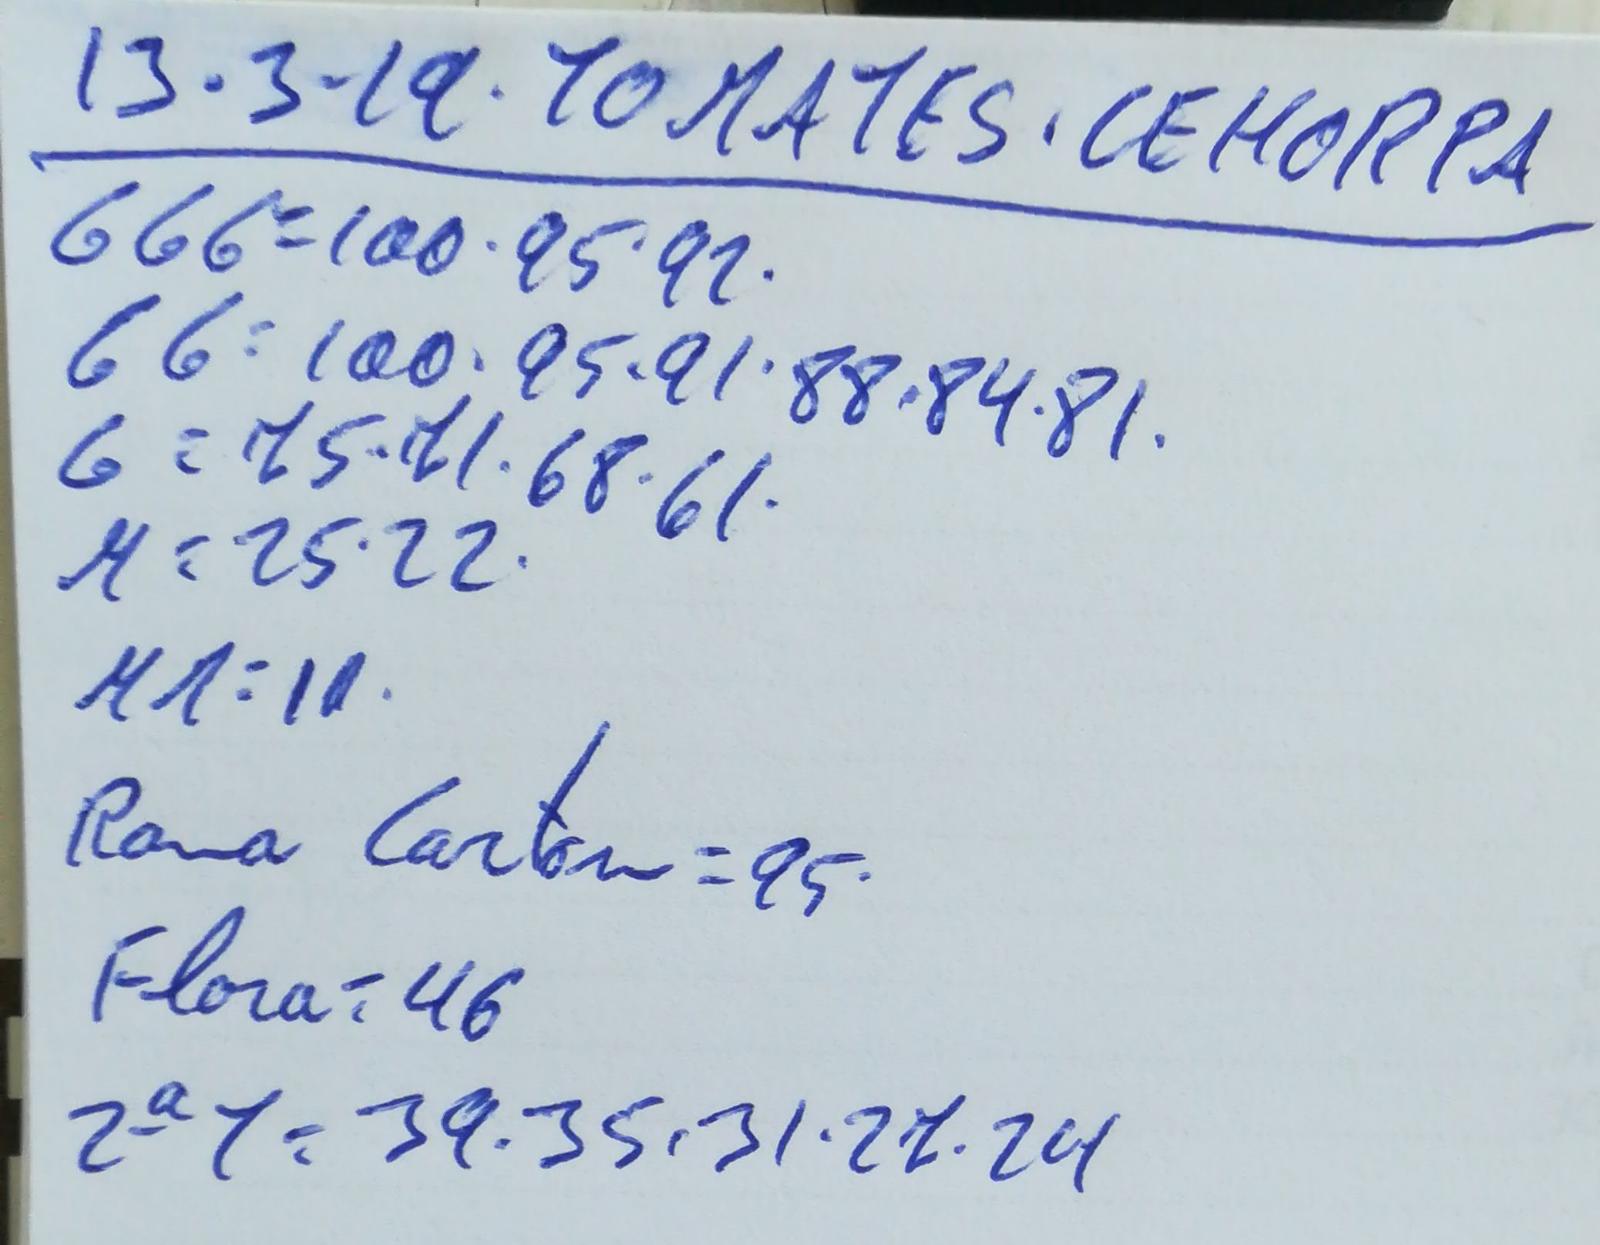 13.3-19. TOMATES. CEHORPA
GGG=100.95.92.
GG=100.95.91.88.84.81.
G=75.71.68.61.
M=25.22.
MM=11.
Rama Carton=95.
Flora=46
2ª T=39.35.31.27.24